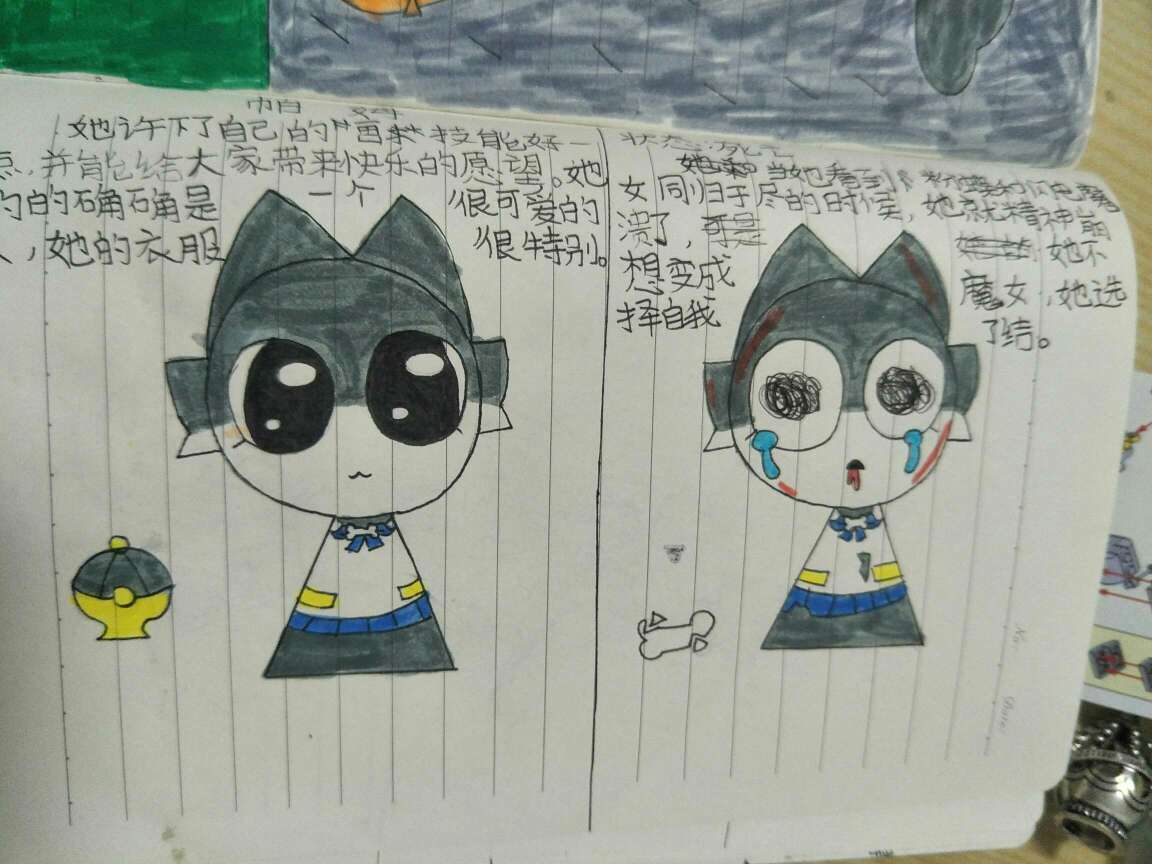 帕 好
她许下了自己的"画技能好一
点,并能给大家带来快乐的愿望。她
的的确确是一个很可爱的
人,她的衣服很特别。
状态:死亡
当她看到粉蝶和闪电魔
女同归于尽的时候,她就精神崩
溃了,可是她不
想变成魔女,她选
择自我了结。
No
Date